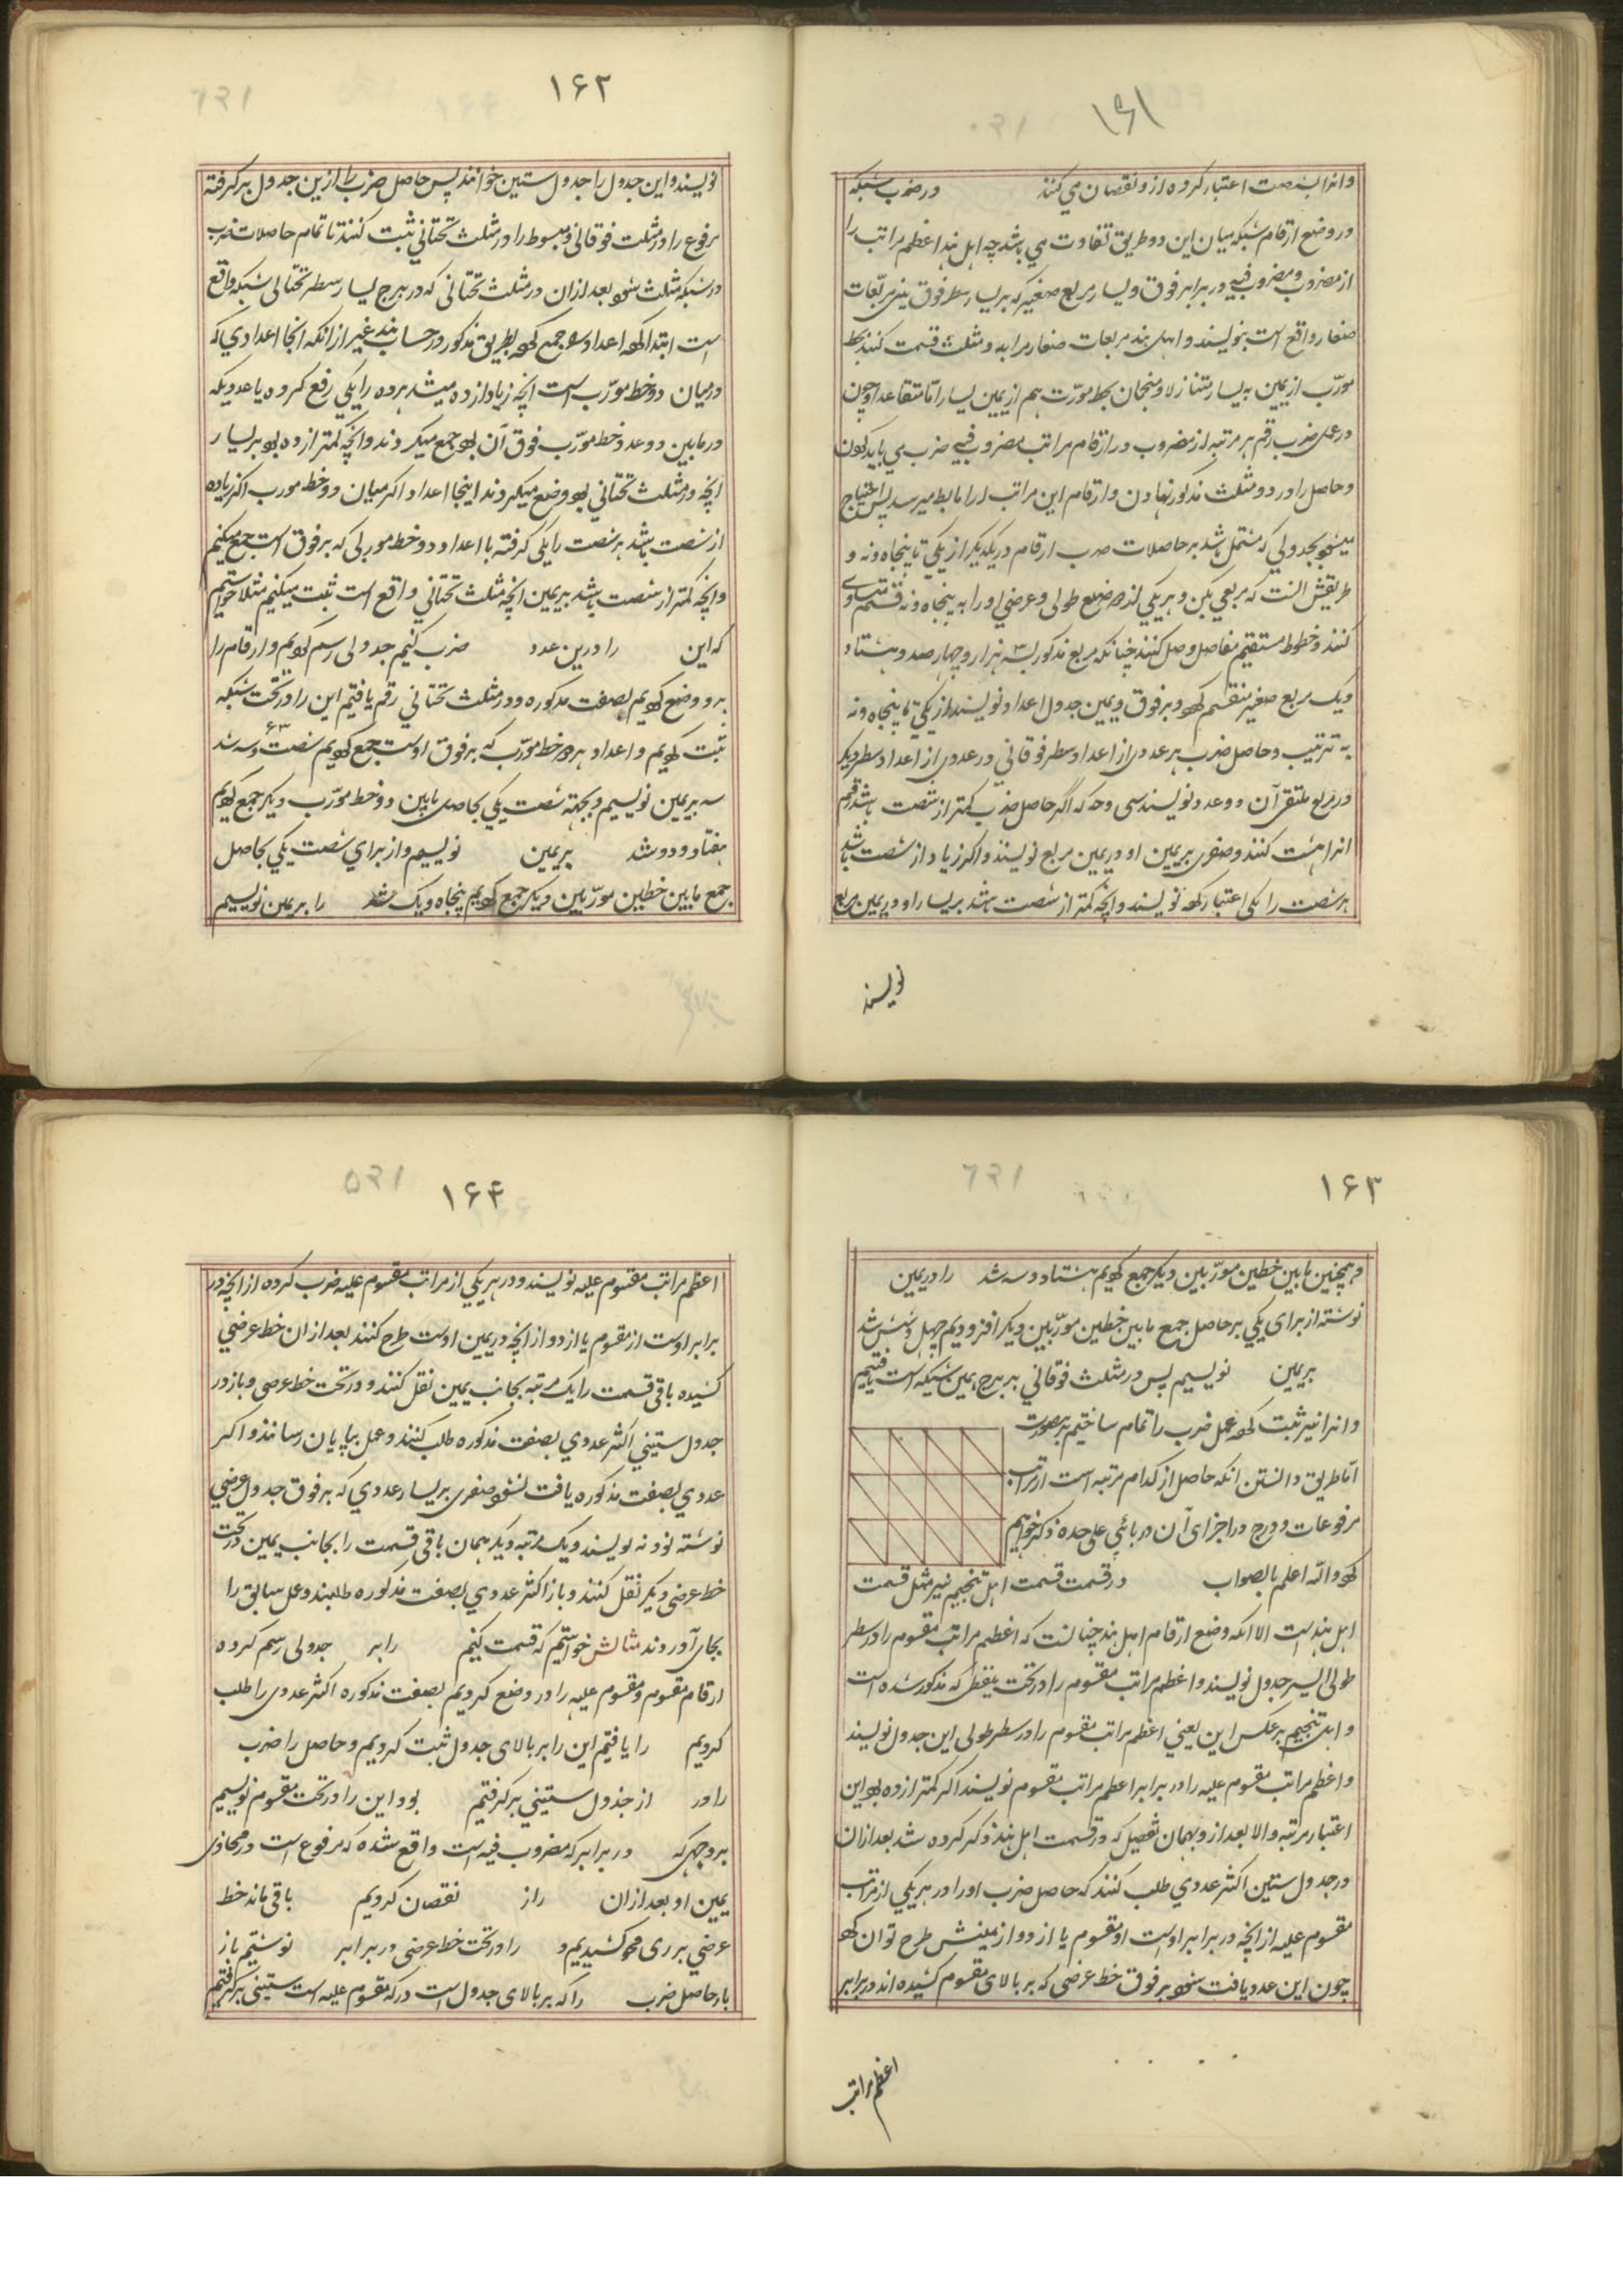 ۱۶۱
وانرا بشصت اعتبار کرده ازو نقصان می کنند در ضرب شبکه
در وضع ارقام شبکه میان این دو طریق تفاوت می باشد چه اهل هند اعظم مراتب را
از مضروب و مضروب فیه در برابر فوق و یسار مربع صغیر که بر یسار سطر فوق یعنی مربعات
صغار واقع است بنویسند و اهل هند مربعات صغار مرا به دو مثلث قسمت کنند بخط
مورّب از یمین به یسار متنازلا و منجمان بخط مورّب هم از یمین یسار اما متقاعدا و چون
در عمل ضرب رقم هر مرتبه از مضروب در ارقام مراتب مضروب فیه ضرب می باید کردن
و حاصل را در دو مثلث مذکور نهادن و ارقام این مراتب او را ما بط میرسد پس احتیاج
میشود بجدولی که مشتمل باشد بر حاصلات ضرب ارقام در یکدیگر از یکی تا پنجاه ونه و
طریقش انست که مربعی بکن و هر یکی از ضلع طولی و عرضی او را به پنجاه ونه قسمت متساوی
کنند و خطوط مستقیم مفاصل وصل کنند چنانکه مربع مذکور بسه هزار و چهار صد و هشتاد
و یک مربع صغیر منقسم کردد و بر فوق و یمین جدول اعداد نویسند از یکی تا پنجاه ونه
به ترتیب و حاصل ضرب هر عددی از اعداد سطر فوقانی در عددی از اعداد سطر دیکر
در مربع ملتقی آن دو عدد نویسند سی وحه که اگر حاصل ضرب کمتر از شصت باشد رقم
انرا هشت کنند و صفری بر یمین او در یمین مربع نویسند و اکر زیاد از شصت باشد
هر شصت را یکی اعتبار کرده نویسند و انچه کمتر از شصت باشد بر یسار او در یمین مربع
نویسند
۱۶۲
نویسند و این جدول را جدول ستین خوانند پس حاصل ضرب را ازین جدول بر گرفته
مرفوع را در مثلث فوقانی و مبسوط را در مثلث تحتانی ثبت کنند تا تمام حاصلات ضرب
در شبکه مثلث شود بعد ازان در مثلث تحتانی که در برج یسار سطر تحتانی شبکه واقع
است ابتدا کرده اعداد را جمع کرده بطریق مذکور در حساب هند غیر از انکه انجا اعدادی که
در میان دو خط مورّب است انچه زیاد از ده میشد هر ده را یکی رفع کرده یا عددیکه
در مابین دو عدد خط مورّب فوق آن بود جمع میکردند و انچه کمتر از ده بود بر یسار
انچه در مثلث تحتانی بود وضع میکردند اینجا اعداد اکر میان دو خط مورب اکر زیاده
از شصت باشد هر شصت را یکی گرفته با اعداد دو خط موربی که بر فوق است جمع میکنیم
و انچه کمتر از شصت باشد بر یمین انچه مثلث تحتانی واقع است ثبت میکنیم مثلا خواستیم
که این را درین عدد ضرب کنیم جدولی رسم کردیم و ارقام را
برو وضع کردیم بصفت مذکوره و در مثلث تحتانی رقم یافتیم این را در تحت شبکه
ثبت کردیم و اعداد هر دو خط مورّب که بر فوق اوست جمع کردیم شصت و سه شد
۶۳
سه بر یمین نویسیم و بجهة شصت یکی بحاصل مابین دو خط مورّب دیکر جمع کردیم
هفتاد و دو شد بر یمین نویسیم و از برای شصت یکی بحاصل
جمع مابین خطین مورّبین دیکر جمع کردیم پنجاه و یک شد را بر یمین نویسیم
۱۶۳
و همچنین مابین خطین مورّبین دیکر جمع کردیم هشتاد و سه شد را در یمین
نوشته از برای یکی بر حاصل جمع مابین خطین مورّبین دیکر افزودیم چهل و شش شد
بر یمین نویسیم پس در مثلث فوقانی بر برج یمین شبکه است یافتیم
و انرا نیز ثبت کرده عمل ضرب را تمام ساختیم بدین صورت
اما طریق دانستن انکه حاصل از کدام مرتبه است از مراتب
مرفوعات و درج در اجزای آن در بابی علی حده ذکر خواهیم
کرد والله اعلم بالصواب در قسمت قسمت اهل تنجیم نیز مثل قسمت
اهل هند است الا انکه وضع ارقام اهل هند چنانست که اعظم مراتب مقسوم را در سطر
طولی ایسر جدول نویسند و اعظم مراتب مقسوم را در تحت بنقطی که مذکور شده است
و اهل تنجیم بر عکس این یعنی اعظم مراتب مقسوم را در سطر طولی این جدول نویسند
و اعظم مراتب مقسوم علیه را در برابر اعظم مراتب مقسوم نویسند اکر کمتر از ده بود این
اعتبار مرتبه والا بعد ازو بهمان تفصیل که در قسمت اهل هند ذکر کرده شد بعد ازان
در جدول ستین اکثر عددی طلب کنند که حاصل ضرب او را در هر یکی از مراتب
مقسوم علیه از انچه در برابر اوست از مقسوم یا ازو و از یمینش طرح توان کرد
چون این عدد یافت شود بر فوق خط عرضی که بر بالای مقسوم کشیده اند در برابر
اعظم مراتب
۱۶۴
اعظم مراتب مقسوم علیه نویسند و در هر یکی از مراتب مقسوم علیه ضرب کرده از انچه در
برابر اوست از مقسوم یا ازو و از انچه در یمین اوست طرح کنند بعد ازان خط عرضی
کشیده باقی قسمت را یک مرتبه بجانب یمین نقل کنند و در تحت خط عرضی و باز در
جدول ستینی اکثر عددی بصفت مذکوره طلب کنند و عمل بپایان رسانند و اکر
عددی بصفت مذکوره یافت نشود صفری بر یسار عددی که بر فوق جدول عرضی
نوشته بودند نویسند و یک مرتبه دیکر همان باقی قسمت را بجانب یمین در تحت
خط عرضی دیکر نقل کنند و باز اکثر عددی بصفت مذکوره طلبند و عمل سابق را
بجای آورند مثالش خواستیم که قسمت کنیم را بر جدولی رسم کرده
ارقام مقسوم و مقسوم علیه را در وضع کردیم بصفت مذکوره اکثر عددی را طلب
کردیم را یافتیم این را بر بالای جدول ثبت کردیم و حاصل را ضرب
را در از جذول ستینی بر کرفتیم بود این را در تحت مقسوم نویسیم
بر وجهی که در برابر که مضروب فیه است واقع شده که مرفوع است در محاذی
یمین او بعد ازان را از نقصان کردیم باقی ماند خط
عرضی بر ری محو کشیدیم و را در تحت خط عرضی در برابر نوشتیم باز
بار حاصل ضرب را که بر بالای جدول است در که مقسوم علیه است ستینی بر کرفتیم